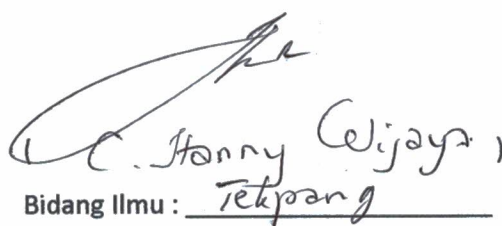 C. Hanny Wijaya
Bidang Ilmu : Tekpang